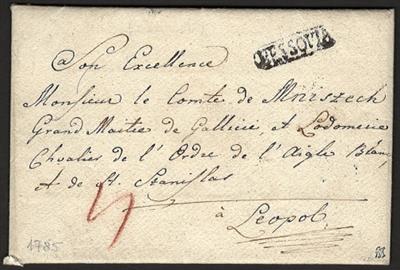 à Son Excellence
Monsieur le Comte de Mniszech
Grand Maitre de Gallicie, et Lodomerie
Chvalier de l'Ordre de l'Aigle Blanc
et de St. Stanislas
à Leopol.
1785